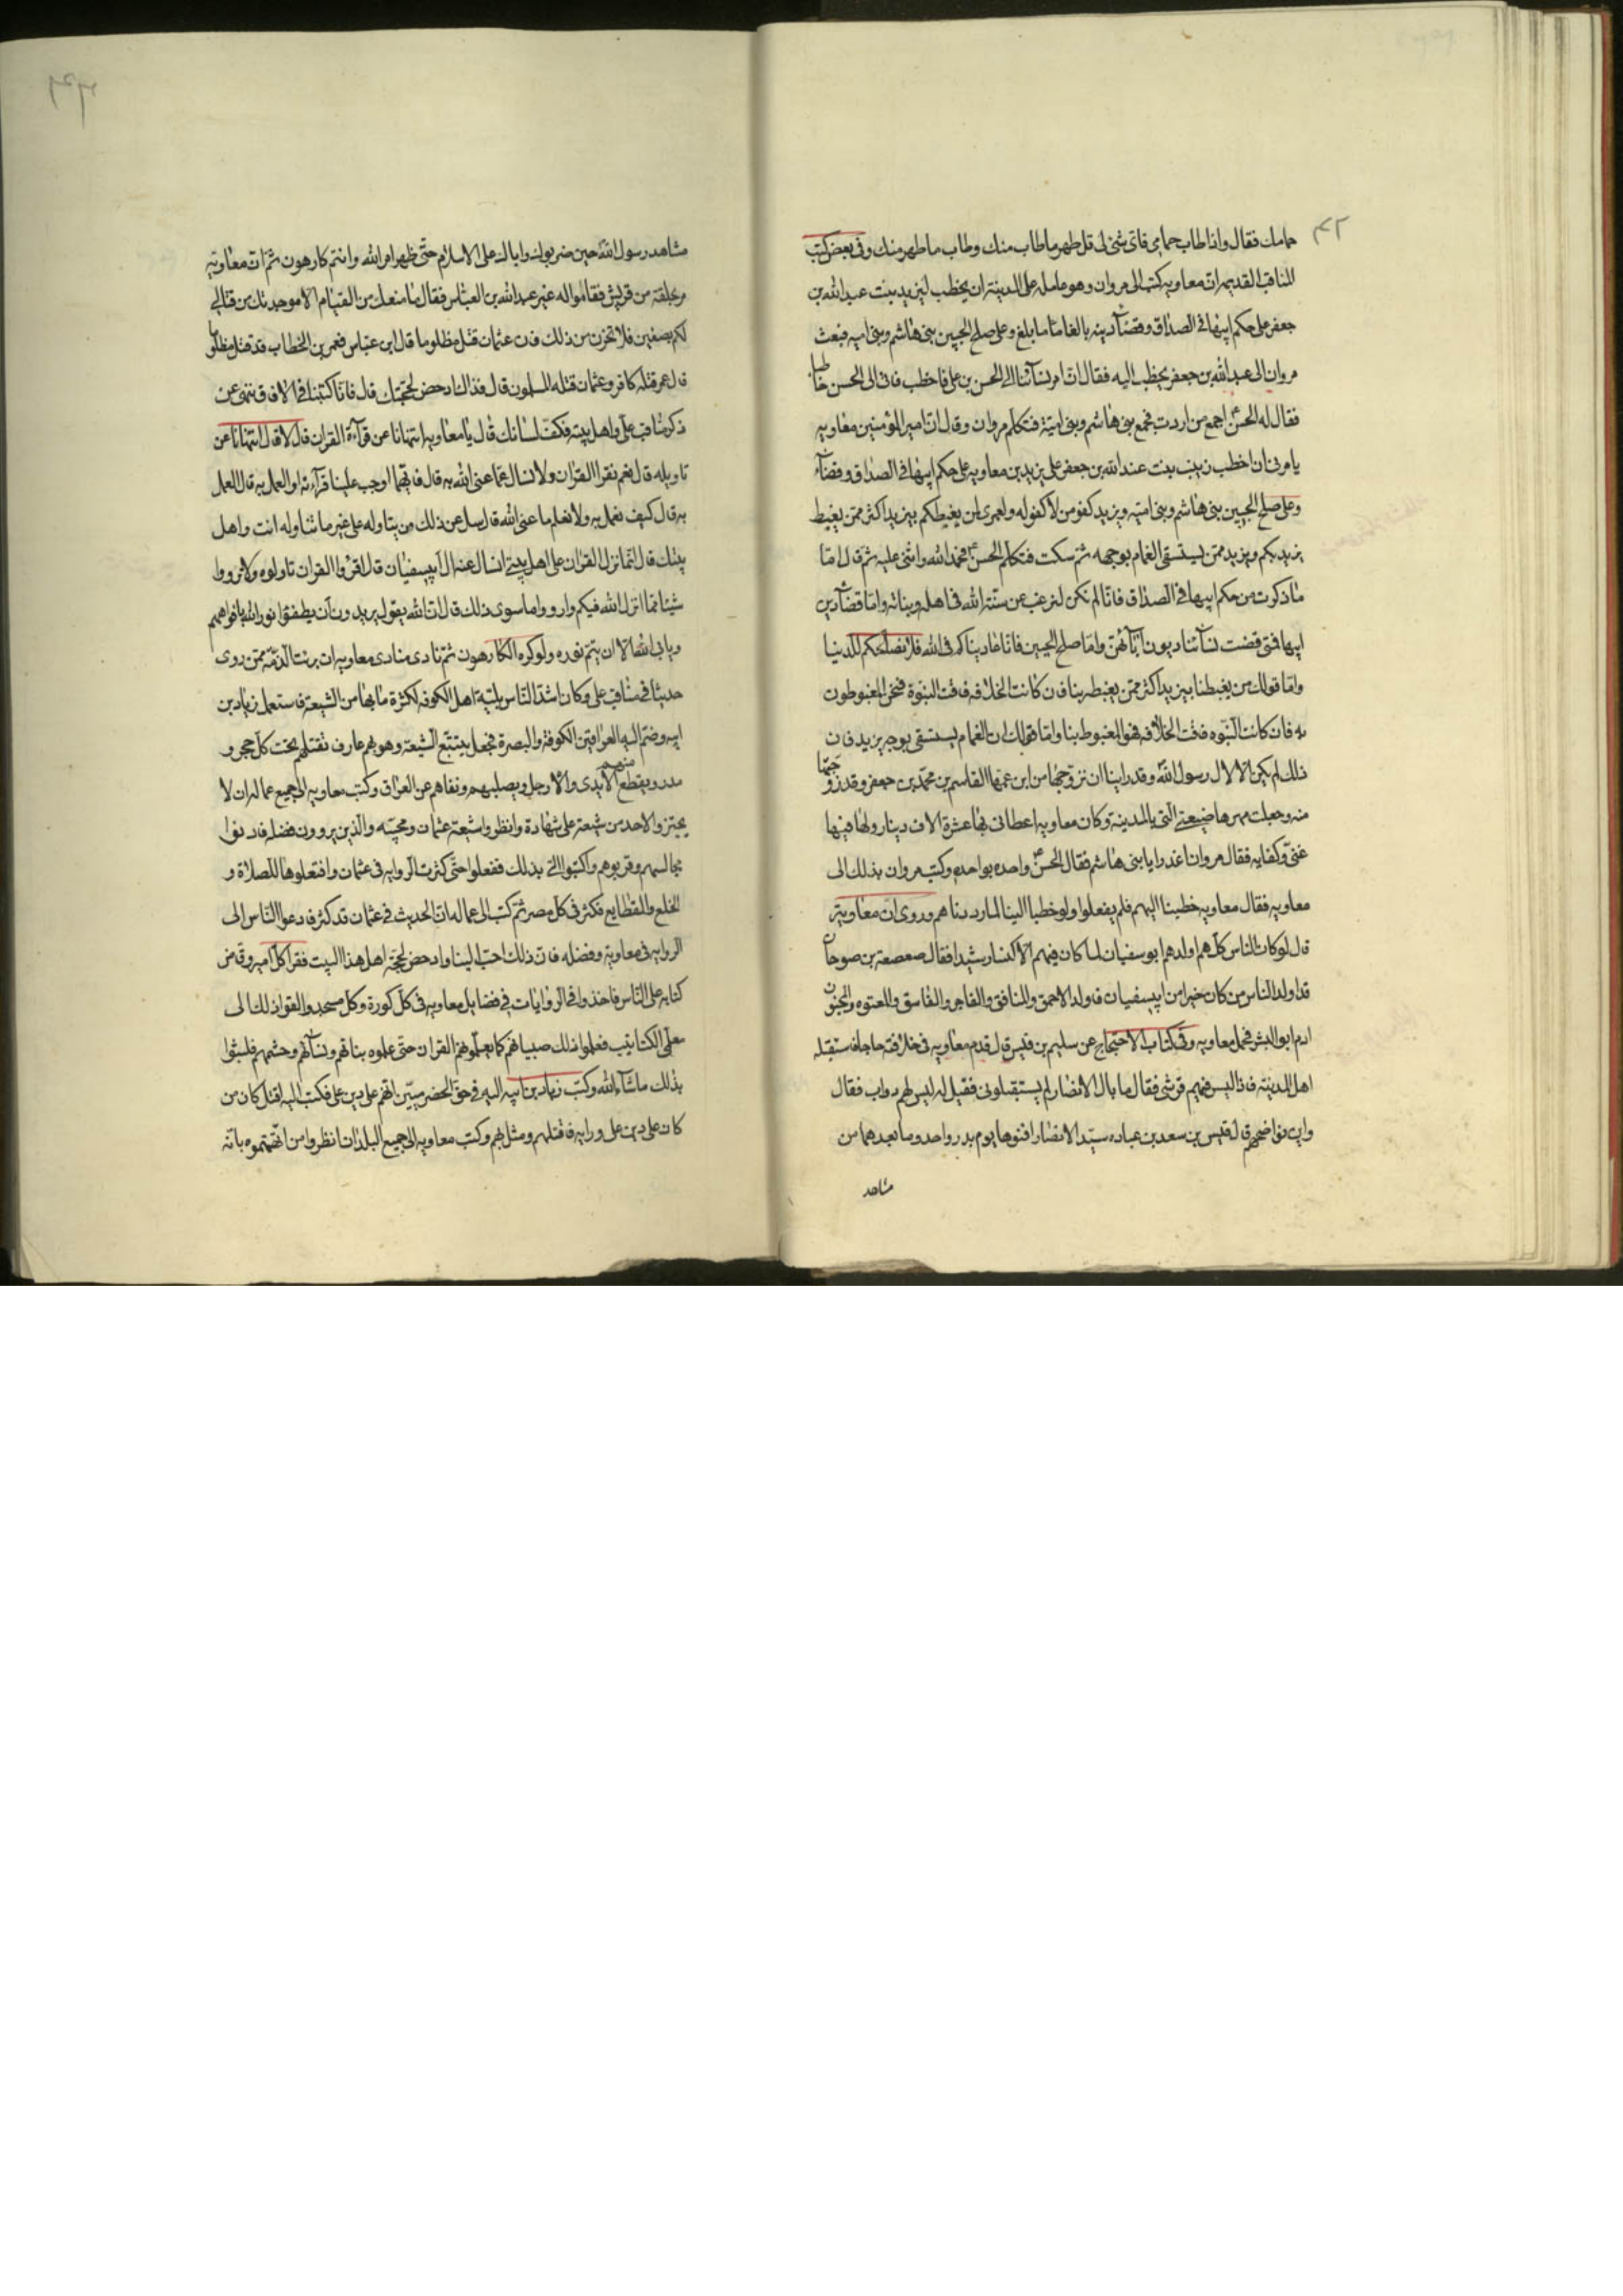 ٤٢
حمامك فقال واذا طاب حمامى فاى شئ لى قل طهر ما طاب منك وطاب ما طهر منك وفى بعض كتب
المناقب القديمة ان معاويه كتب الى مروان وهو عامله على المدينة ان يخطب ليزيد بنت عبد الله بن
جعفر على حكم ابيها فى الصداق وقضاء دينه بالغا ما بلغ وعلى صلح الحيين بنى هاشم وبنى اميه فبعث
مروان الى عبد الله بن جعفر يخطب اليه فقال ان امر نسائنا الى الحسن بن على فاخطب فاتى الى الحسن خاطبا
فقال له الحسن اجمع من اردت فجمع بنى هاشم وبنى امية فتكلم مروان وقال ان امير المؤمنين معاويه
يامرنى ان اخطب زينب بنت عبد الله بن جعفر على يزيد بن معاويه على حكم ابيها فى الصداق وقضاء
وعلى صلح الحيين بنى هاشم وبنى اميه ويزيد كفو من لا كفو له ولعمرى لمن يغبطكم بيزيد اكثر ممن يغبط
يزيد بكم ويزيد ممن يستسقى الغمام بوجهه ثم سكت فتكلم الحسن فحمد الله واثنى عليه ثم قال اما
ما ذكرت من حكم ابيها فى الصداق فانا لم نكن لنرغب عن سنة الله فى اهله وبناته واما قضاء دين
ابيها فمتى قضت نسائنا ديون ابآئهن واما صلح الحيين فانا عاديناكم فى الله فلا نصلحكم للدنيا
واما قولك من يغبطنا بيزيد اكثر ممن يغبطه بنا فان كانت الخلافه فاقت النبوة فنحن المغبوطون
به فان كانت النبوه فاقت الخلافه فهو المغبوط بنا واما قولك ان الغمام يستسقى بوجه يزيد فان
ذلك لم يكن الا لال رسول الله وقد راينا ان نزوجها من ابن عمها القاسم بن محمد بن جعفر وقد زوجتها
منه وجعلت مهرها ضيعتى التى بالمدينة وكان معاويه اعطانى بها عشرة الاف دينار ولها فيها
غنى وكفايه فقال مروان اغدرا يا بنى هاشم فقال الحسن واحده بواحده وكتب مروان بذلك الى
معاويه فقال معاويه خطبنا اليهم فلم يفعلوا ولو خطبوا الينا لما رددناهم وروى ان معاوية
قال لو كان الناس كلهم اولدهم ابو سفيان لما كان فيهم الا كيسا رشيدا فقال صعصعة بن صوحان
قد اولد الناس من كان خيرا من ابى سفيان فاولد الاحمق والمنافق والفاجر والفاسق والمعتوه والمجنون
ادم ابو البشر فخجل معاويه وفى كتاب الاحتجاج عن سليم بن قيس قال قدم معاويه فى خلافته حاجا فاستقبله
اهل المدينة فاذا ليس فيهم قرشى فقال ما بال الانصار لم يستقبلونى فقيل له ليس لهم دواب فقال
واين نواضحهم قال قيس بن سعد بن عباده سيد الانصار افنوها يوم بدر واحد وما بعدهما من
مشاهد
مشاهد رسول الله حين ضربوك واباك على الاسلام حتى ظهر امر الله وانتم كارهون ثم ان معاوية
مر بحلقة من قريش فقاموا له غير عبد الله بن العباس فقال ما منعك من القيام الا موجدتك من قتالى
لكم بصفين فلا تحزن من ذلك فان عثمان قتل مظلوما قال ابن عباس فعمر بن الخطاب قد قتل مظلوما
قال عمر قتله كافر وعثمان قتله المسلمون قال فذاك ادحض لحجتك قال فانا كتبنا فى الافاق ننهى عن
ذكر مناقب على واهل بيته فكف لسانك قال يا معاويه اتنهانا عن قرآءة القران قال لا قال اتنهانا عن
تاويله قال نعم نقرا القران ولا نسال عما عنى الله به قال فايهما اوجب علينا قرآءته او العمل به قال العمل
به قال كيف نعمل به ولا نعلم ما عنى الله قال سل عن ذلك من يتاوله على غير ما تتاوله انت واهل
بيتك قال انما نزل القران على اهل بيتى انسال عنه ال ابى سفيان قال اقرؤا القران تاولوه ولا ترووا
شيئا مما انزل الله فيكم وارووا ما سوى ذلك قال ان الله يقول يريدون ان يطفئوا نور الله بافواههم
ويابى الله الا ان يتم نوره ولو كره الكارهون ثم نادى منادى معاويه ان برئت الذمة ممن روى
حديثا فى مناقب على وكان اشد الناس بلية اهل الكوفه لكثرة ما بها من الشيعة فاستعمل زياد بن
ابيه وضم اليه العراقين الكوفة والبصرة فجعل يتتبع الشيعة وهو بهم عارف فقتلهم تحت كل حجر و
مدر ويقطع منهم الايدى والارجل ويصلبهم ونفاهم عن العراق وكتب معاويه الى جميع عماله ان لا
يجتزوا لاحد من شيعة على شهادة وانظروا شيعة عثمان ومحبيه والذين يروون فضله فادنوا
مجالسهم وقربوهم واكتبوا الى بذلك ففعلوا حتى كثرت الروايه فى عثمان وافتعلوها للصلاة و
الخلع والقطايع فكثر فى كل مصر ثم كتب الى عماله ان الحديث فى عثمان قد كثر فادعوا الناس الى
الروايه فى معاوية وفضله فان ذلك احب الينا وادحض لحجة اهل هذا البيت فقرا كل امير وقاض
كتابه على الناس فاخذوا فى الروايات فى فضايل معاويه فى كل كورة وكل مسجد والقوا ذلك الى
معلمى الكتاتيب فعلموا ذلك صبيانهم كما يعلمونهم القران حتى علموه بناتهم ونسائهم وحشمهم فلبثوا
بذلك ما شآء الله وكتب زياد بن ابيه اليه فى حق الحضرميين انهم على دين على فكتب اليه اقتل كان من
كان على دين على ورايه فاقتلهم ومثل بهم وكتب معاويه الى جميع البلدان انظروا من اتهمتموه بانه